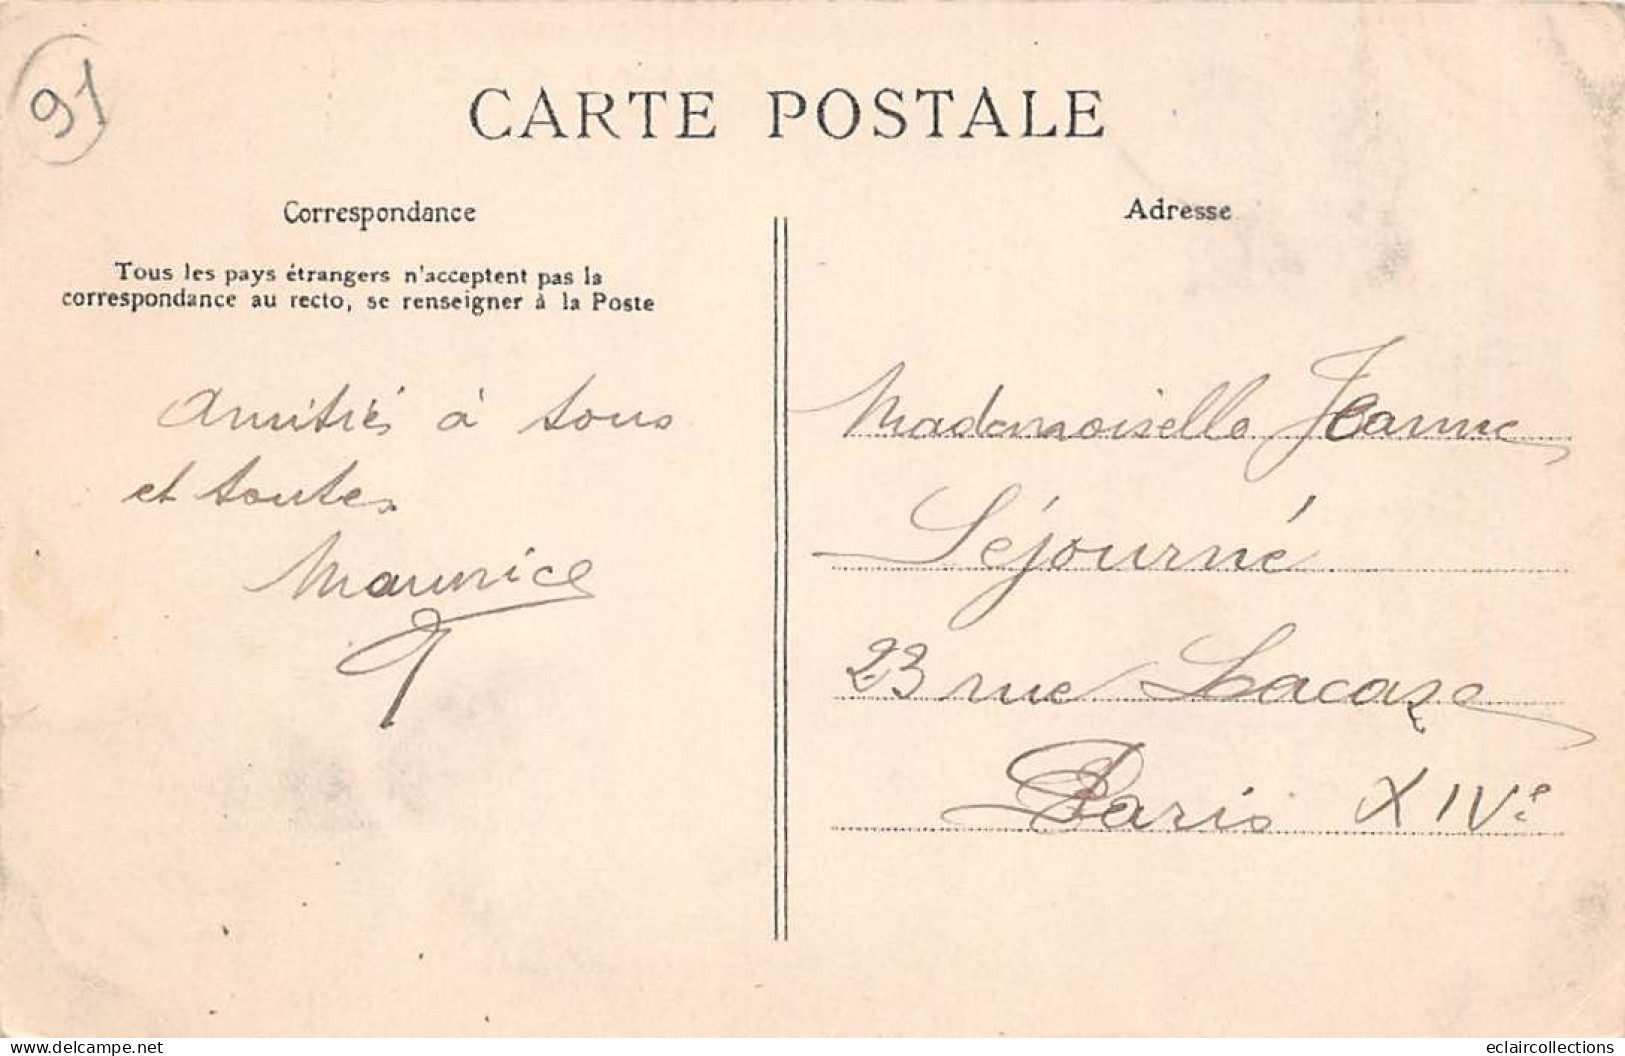 91
CARTE POSTALE
Correspondance
Tous les pays étrangers n'acceptent pas la
correspondance au recto, se renseigner à la Poste
Amitiés à tous
et toutes
Maurice
Adresse
Mademoiselle Jeanne
Séjourné
23 rue Lacaze
Paris XIVe
www.delcampe.net
eclaircollections